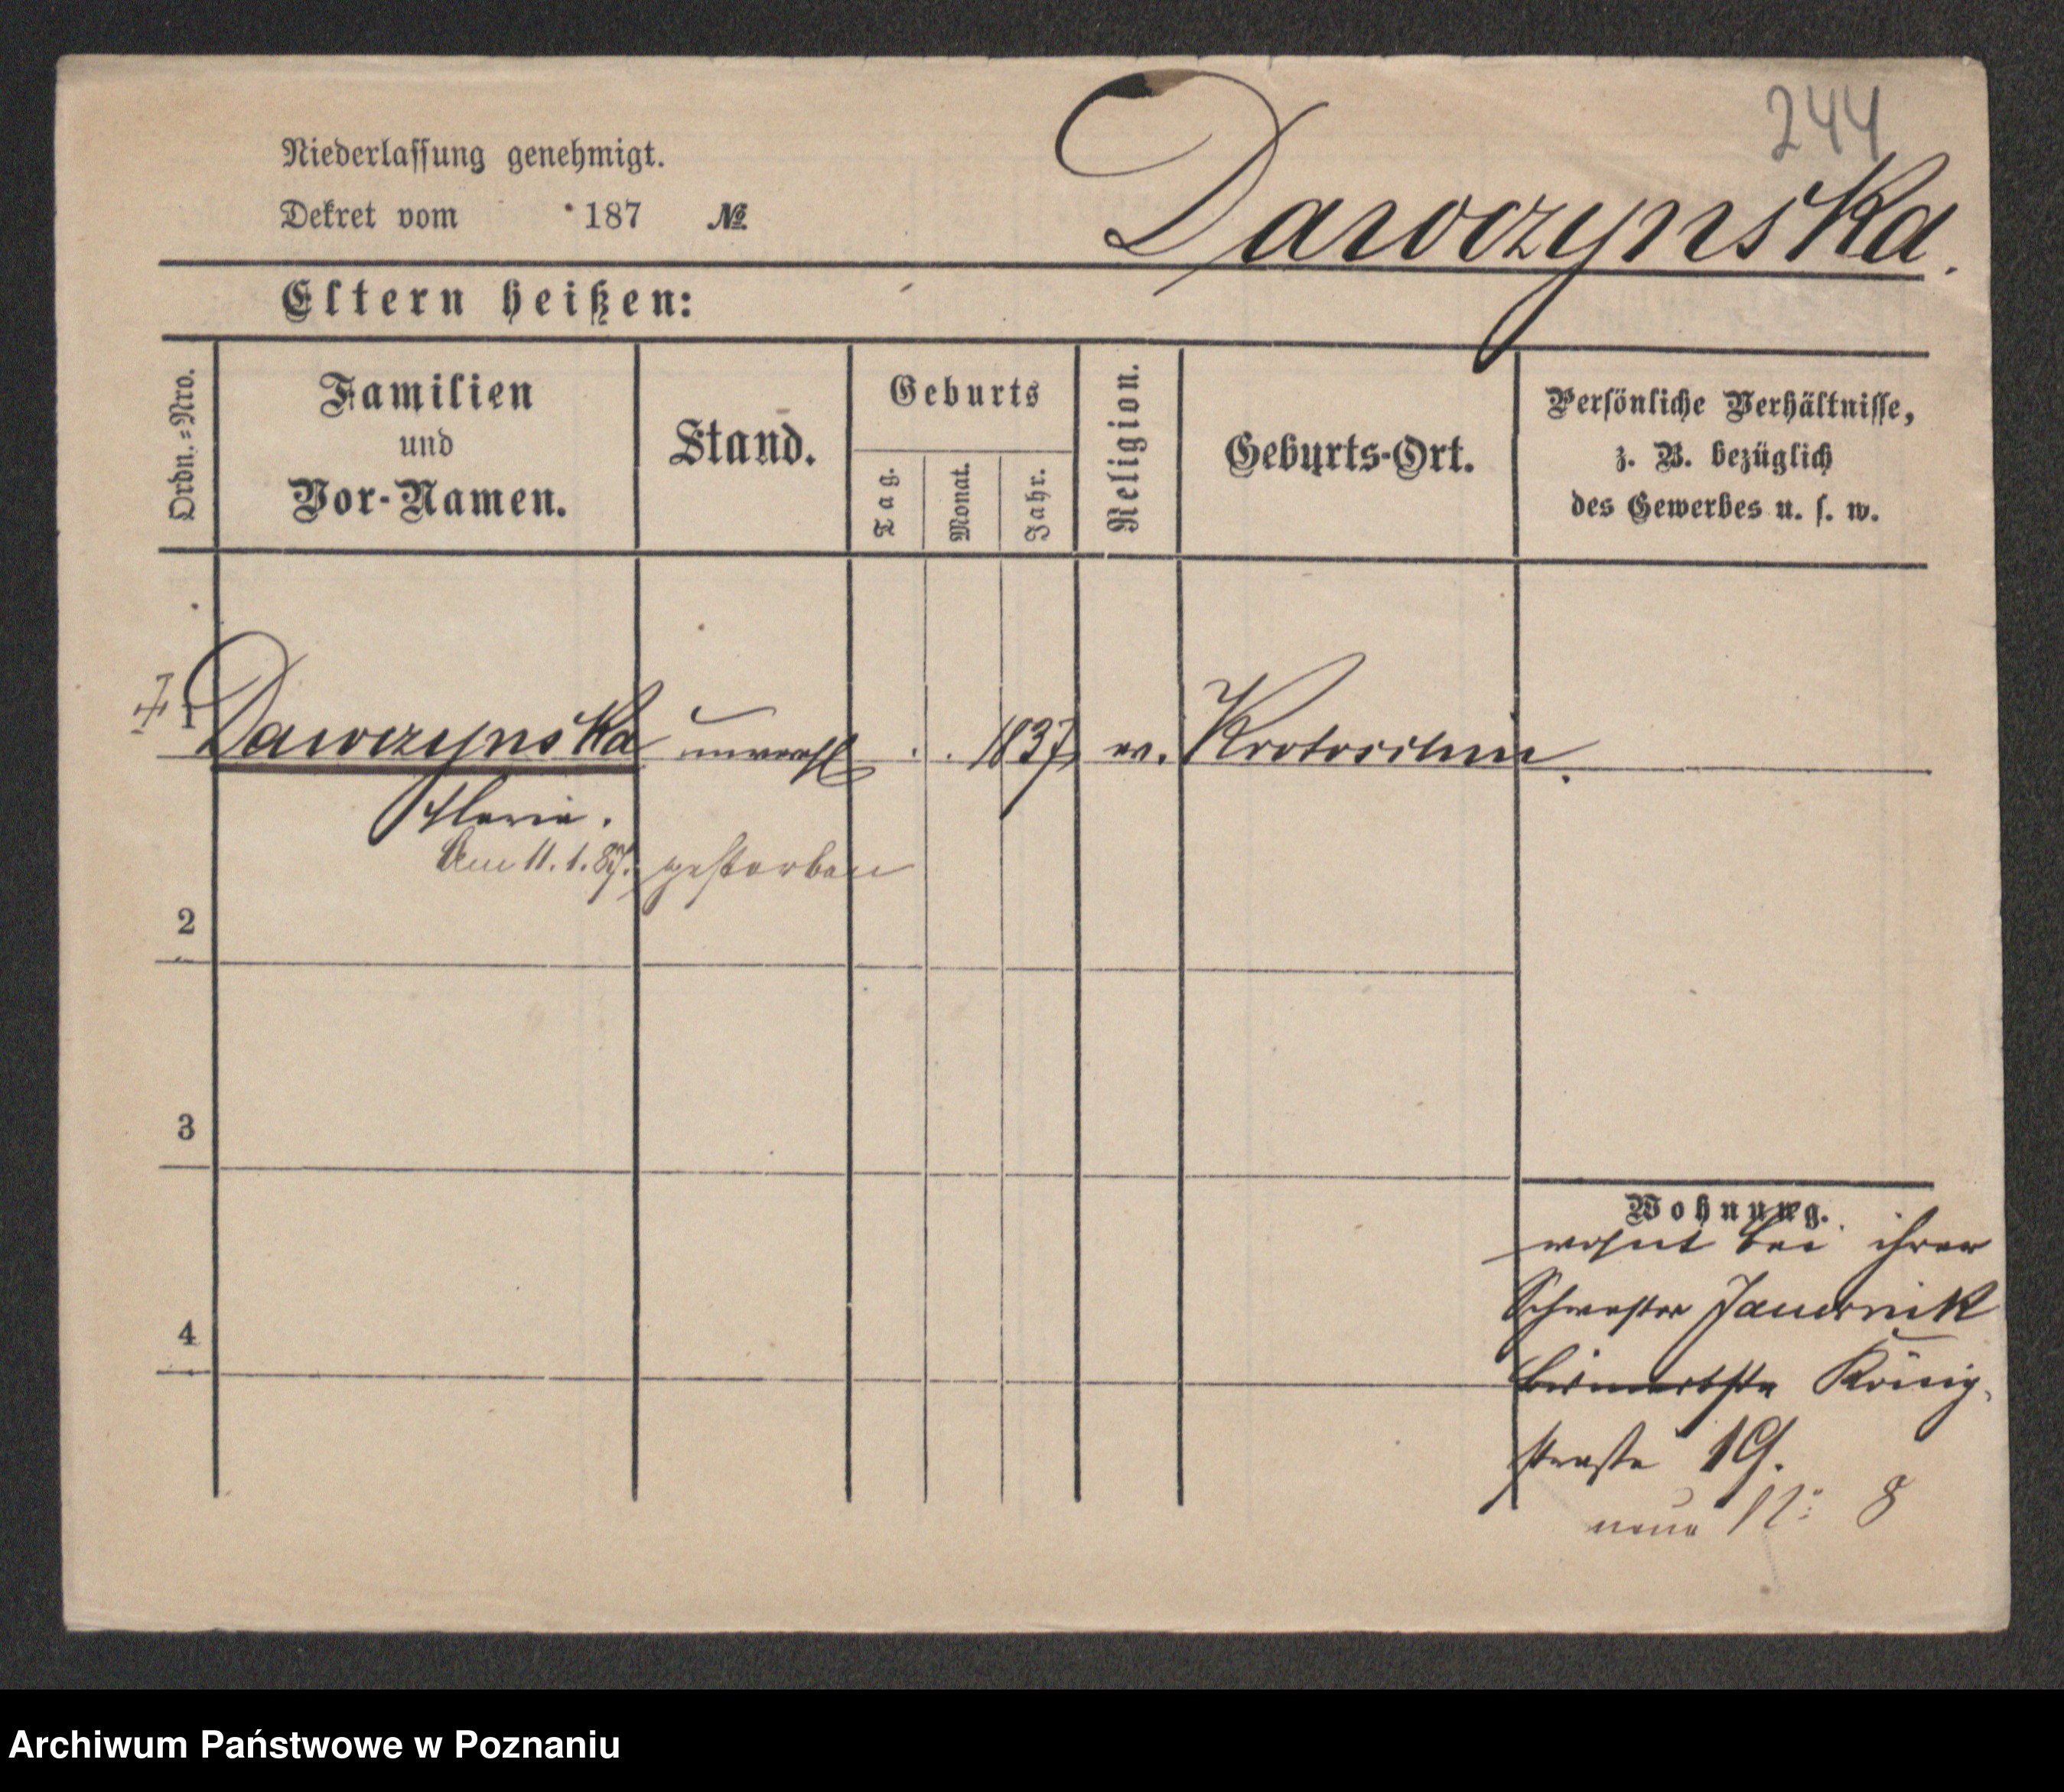 244
Dawczynska.
Niederlassung genehmigt.
Dekret vom 187 №
Eltern heißen:
Ordn.=Nro.
Familien
und
Vor-Namen.
Stand.
Geburts
Tag.
Monat.
Jahr.
Religion.
Geburts-Ort.
Persönliche Verhältnisse,
z. B. bezüglich
des Gewerbes u. s. w.
1 Dawczynska unverehl . . 1837 Krotoschin.
Am 11. 1. 87. gestorben
2
3
4
Wohnung.
wohnt bei ihrer
Schwester Jauernik
König-
straße 19.
neue No: 8
Archiwum Państwowe w Poznaniu